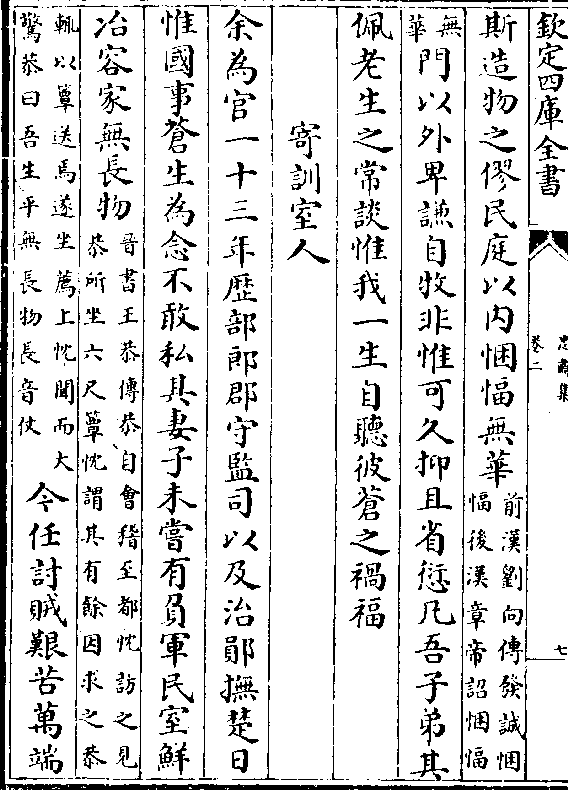 欽定四庫全書
卷二
七
斯造物之僇民庭以内悃愊無華前漢劉向傳發誠悃
愊後漢章帝詔悃愊
無
華門以外卑謙自牧非惟可久抑且省愆凡吾子弟其
佩老生之常談惟我一生自聽彼蒼之禍福
寄訓室人
余為官一十三年歴部郎郡守監司以及治鄖撫楚日
惟國事蒼生為念不敢私其妻子未嘗有負軍民室鮮
冶容家無長物晉書王恭傳恭自會稽至都忱訪之見
恭所坐六尺簟忱謂其有餘因求之恭
輒以簟送焉遂坐薦上忱聞而大
驚恭曰吾生平無長物長音仗
今任討賊艱苦萬端